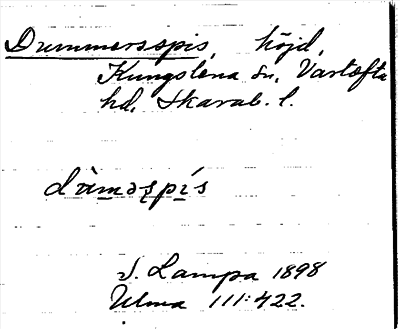 Dummersspis, höjd,
Kungslena sn, Vartofta
hd, Skarab. l.
dùməspìs
S. Lampa 1898
Ulma 111:422.